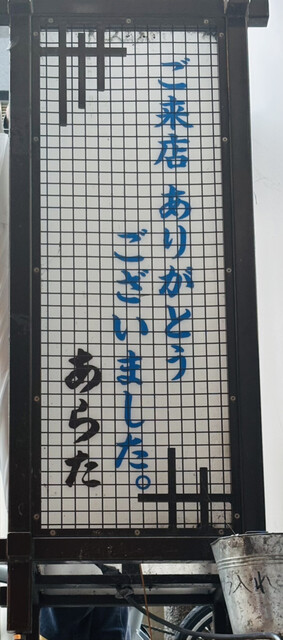 ご来店 ありがとう
ございました。
あらた
入れ